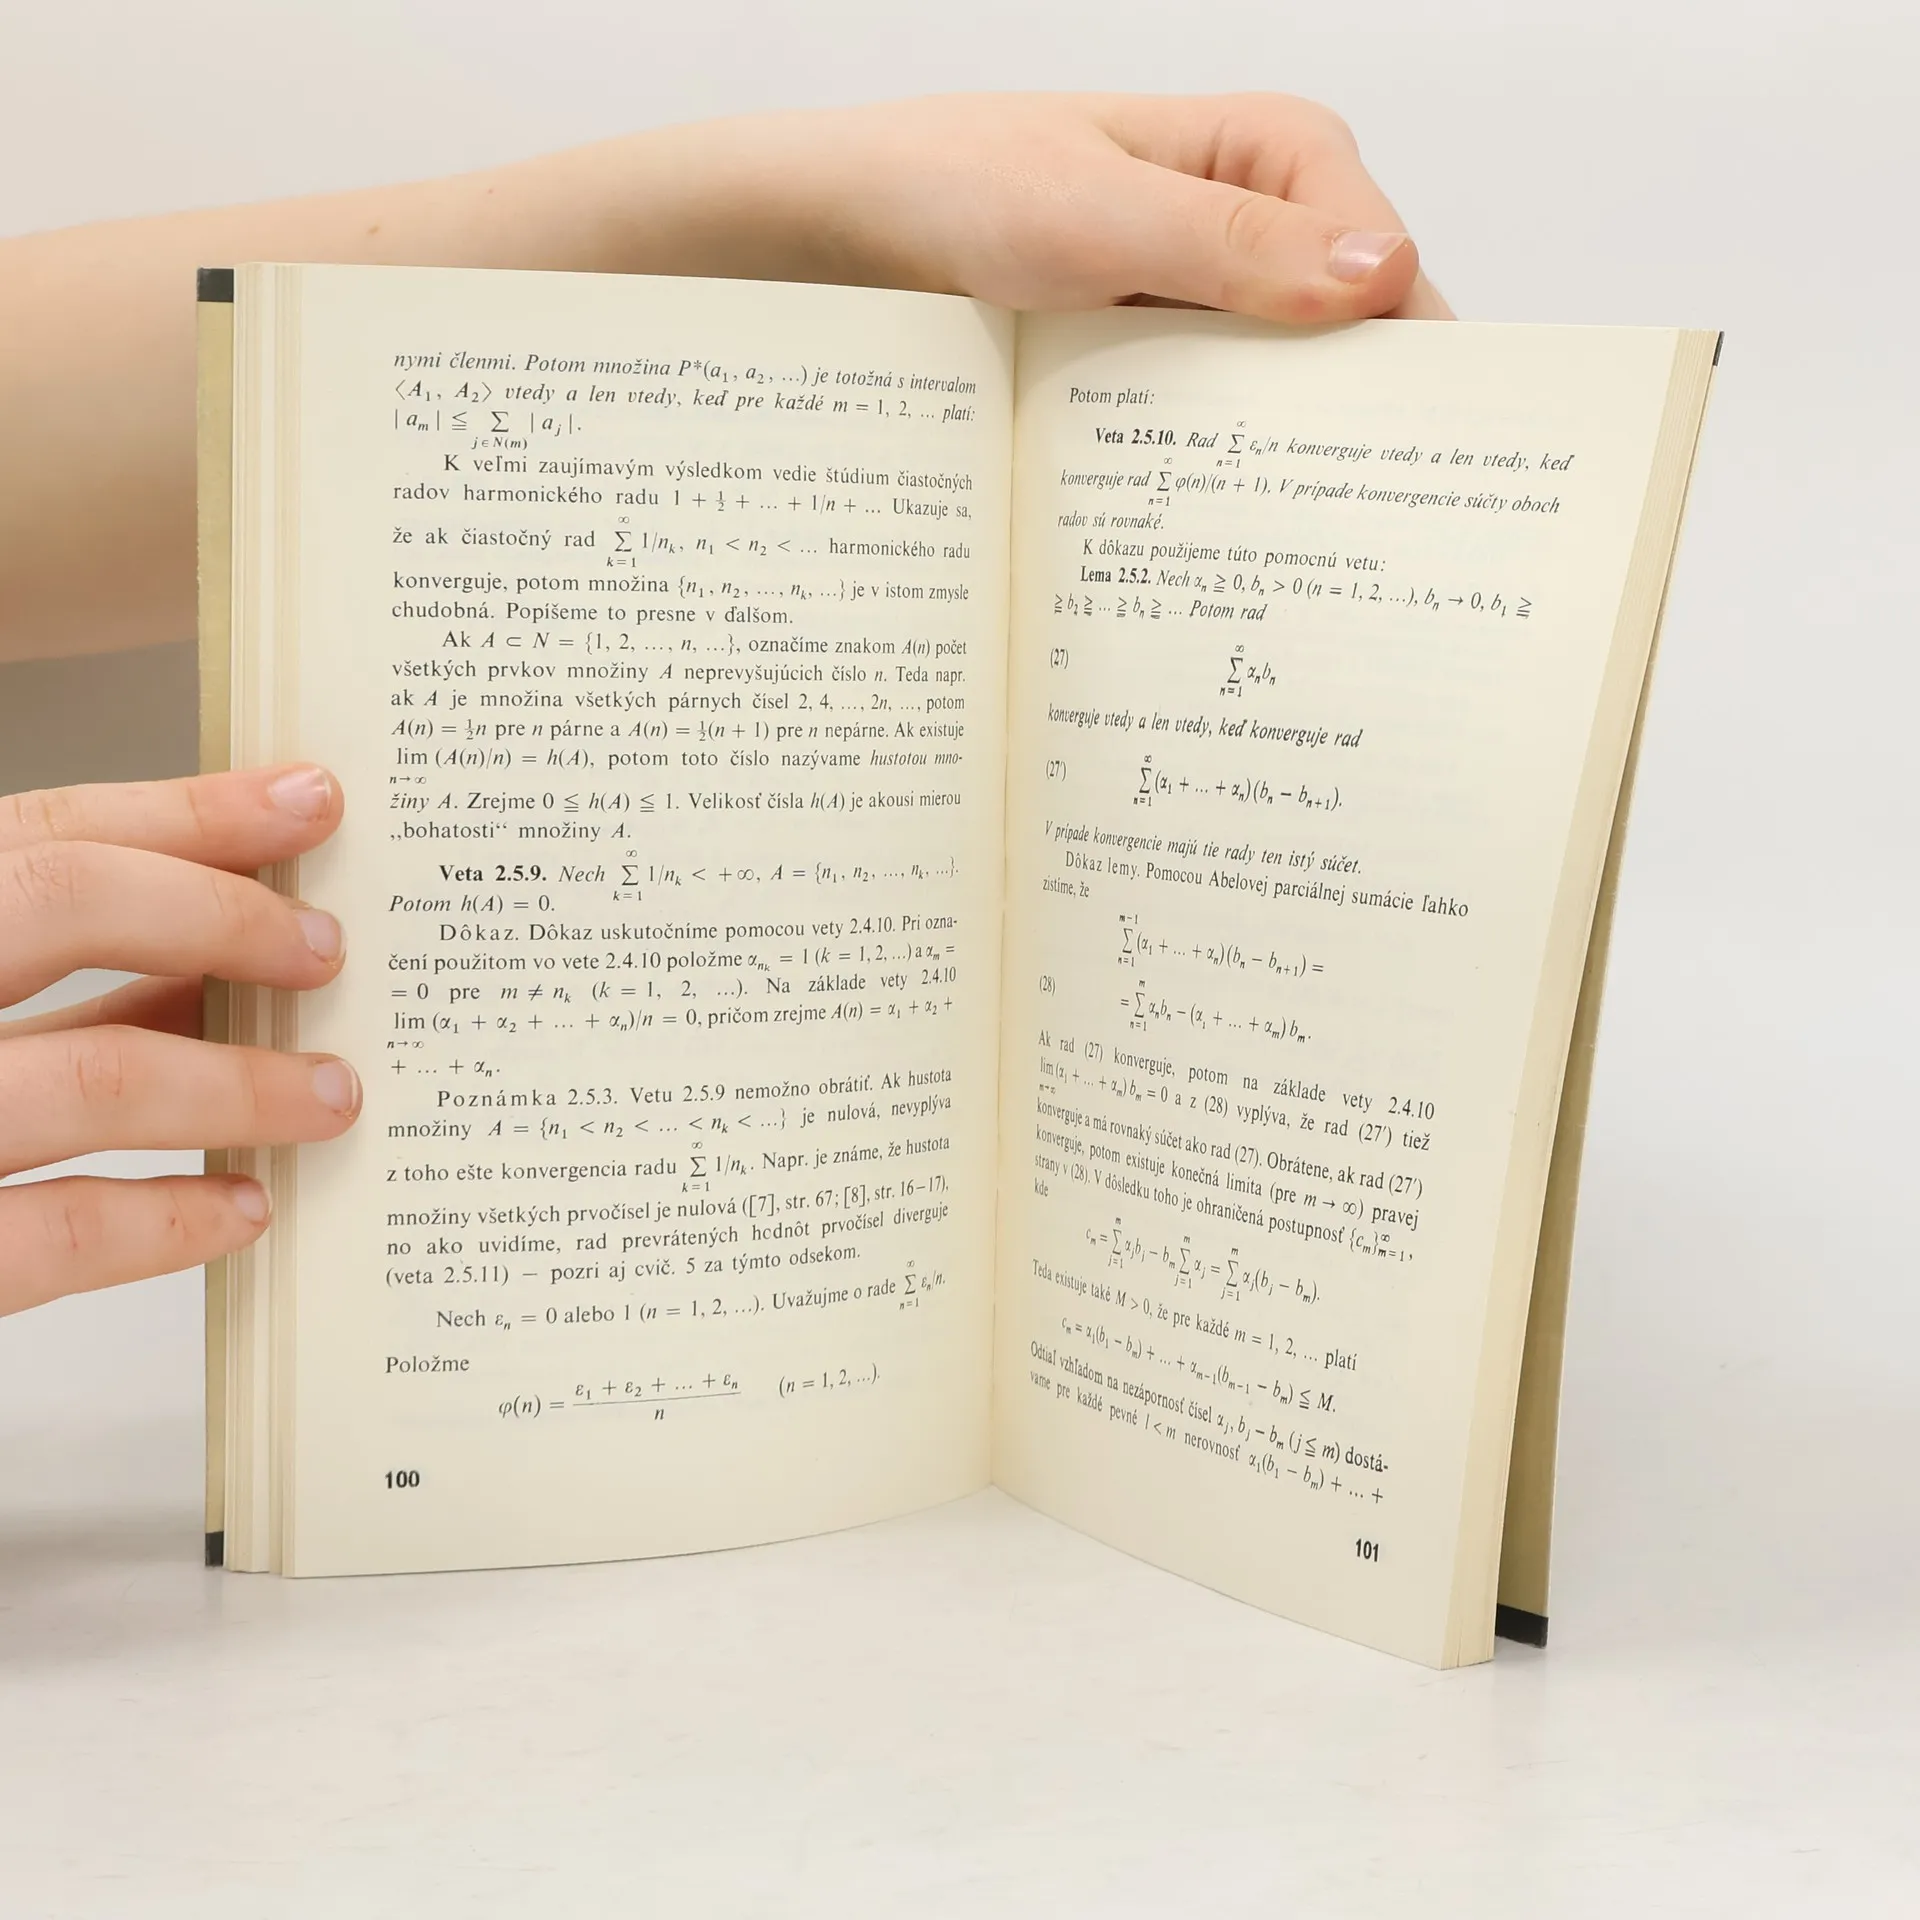 nymi členmi. Potom množina P*(a₁, a₂, ...) je totožná s intervalom
⟨A₁, A₂⟩ vtedy a len vtedy, keď pre každé m = 1, 2, ... platí:
|aₘ| ≦ ∑ |aⱼ|.
j ∈ N(m)
K veľmi zaujímavým výsledkom vedie štúdium čiastočných
radov harmonického radu 1 + ½ + ... + 1/n + ... Ukazuje sa,
že ak čiastočný rad ∑ₖ₌₁^∞ 1/nₖ, n₁ < n₂ < ... harmonického radu
konverguje, potom množina {n₁, n₂, ..., nₖ, ...} je v istom zmysle
chudobná. Popíšeme to presne v ďalšom.
Ak A ⊂ N = {1, 2, ..., n, ...}, označíme znakom A(n) počet
všetkých prvkov množiny A neprevyšujúcich číslo n. Teda napr.
ak A je množina všetkých párnych čísel 2, 4, ..., 2n, ..., potom
A(n) = ½n pre n párne a A(n) = ½(n + 1) pre n nepárne. Ak existuje
lim (A(n)/n) = h(A), potom toto číslo nazývame hustotou mno-
n→∞
žiny A. Zrejme 0 ≦ h(A) ≦ 1. Velikosť čísla h(A) je akousi mierou
„bohatosti“ množiny A.
Veta 2.5.9. Nech ∑ₖ₌₁^∞ 1/nₖ < +∞, A = {n₁, n₂, ..., nₖ, ...}.
Potom h(A) = 0.
Dôkaz. Dôkaz uskutočníme pomocou vety 2.4.10. Pri ozna-
čení použitom vo vete 2.4.10 položme α_{nₖ} = 1 (k = 1, 2, ...) a αₘ =
= 0 pre m ≠ nₖ (k = 1, 2, ...). Na základe vety 2.4.10
lim (α₁ + α₂ + ... + αₙ)/n = 0, pričom zrejme A(n) = α₁ + α₂ +
n→∞
+ ... + αₙ.
Poznámka 2.5.3. Vetu 2.5.9 nemožno obrátiť. Ak hustota
množiny A = {n₁ < n₂ < ... < nₖ < ...} je nulová, nevyplýva
z toho ešte konvergencia radu ∑ₖ₌₁^∞ 1/nₖ. Napr. je známe, že hustota
množiny všetkých prvočísel je nulová ([7], str. 67; [8], str. 16–17),
no ako uvidíme, rad prevrátených hodnôt prvočísel diverguje
(veta 2.5.11) – pozri aj cvič. 5 za týmto odsekom.
Nech εₙ = 0 alebo 1 (n = 1, 2, ...). Uvažujme o rade ∑ₙ₌₁^∞ εₙ/n.
Položme
φ(n) = (ε₁ + ε₂ + ... + εₙ)/n (n = 1, 2, ...).
100
Potom platí:
Veta 2.5.10. Rad ∑ₙ₌₁^∞ εₙ/n konverguje vtedy a len vtedy, keď
konverguje rad ∑ₙ₌₁^∞ φ(n)/(n + 1). V prípade konvergencie súčty oboch
radov sú rovnaké.
K dôkazu použijeme túto pomocnú vetu:
Lema 2.5.2. Nech αₙ ≧ 0, bₙ > 0 (n = 1, 2, ...), bₙ → 0, b₁ ≧
≧ b₂ ≧ ... ≧ bₙ ≧ ... Potom rad
(27) ∑ₙ₌₁^∞ αₙbₙ
konverguje vtedy a len vtedy, keď konverguje rad
(27′) ∑ₙ₌₁^∞ (α₁ + ... + αₙ)(bₙ − bₙ₊₁).
V prípade konvergencie majú tie rady ten istý súčet.
Dôkaz lemy. Pomocou Abelovej parciálnej sumácie ľahko
zistíme, že
∑ₙ₌₁^{m−1} (α₁ + ... + αₙ)(bₙ − bₙ₊₁) =
(28) = ∑ₙ₌₁^m αₙbₙ − (α₁ + ... + αₘ) bₘ.
Ak rad (27) konverguje, potom na základe vety 2.4.10
lim (α₁ + ... + αₘ) bₘ = 0 a z (28) vyplýva, že rad (27′) tiež
m→∞
konverguje a má rovnaký súčet ako rad (27). Obrátene, ak rad (27′)
konverguje, potom existuje konečná limita (pre m → ∞) pravej
strany v (28). V dôsledku toho je ohraničená postupnosť {cₘ}ₘ₌₁^∞,
kde
cₘ = ∑ⱼ₌₁^m αⱼbⱼ − bₘ ∑ⱼ₌₁^m αⱼ = ∑ⱼ₌₁^m αⱼ(bⱼ − bₘ).
Teda existuje také M > 0, že pre každé m = 1, 2, ... platí
cₘ = α₁(b₁ − bₘ) + ... + αₘ₋₁(bₘ₋₁ − bₘ) ≦ M.
Odtiaľ vzhľadom na nezápornosť čísel αⱼ, bⱼ − bₘ (j ≦ m) dostá-
vame pre každé pevné l < m nerovnosť α₁(b₁ − bₘ) + ... +
101